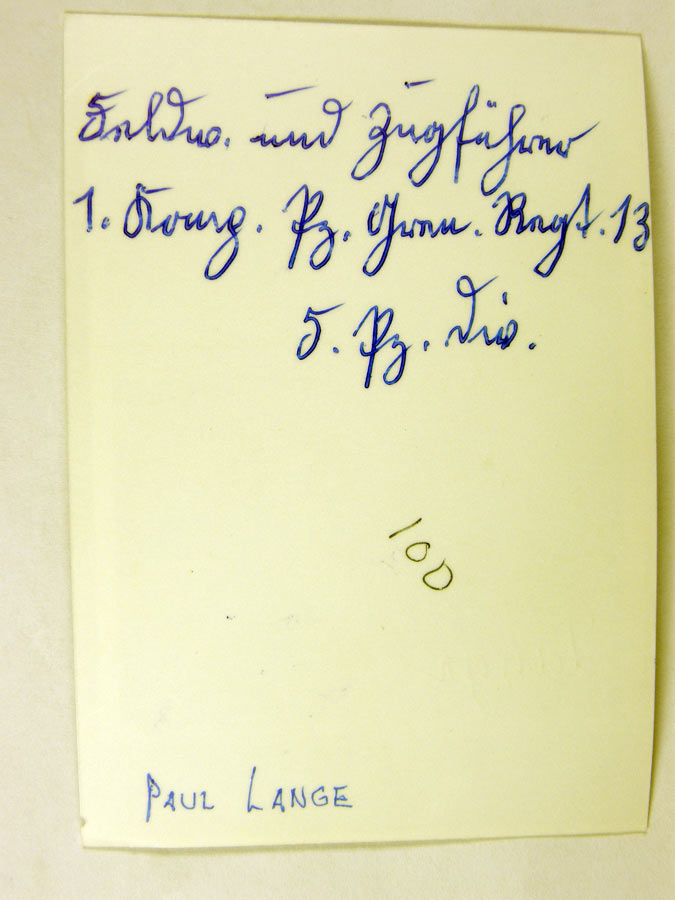 Feldw. und Zugführer
1. Komp. Pz. Gren. Regt. 13
5. Pz. Div.
100
PAUL LANGE